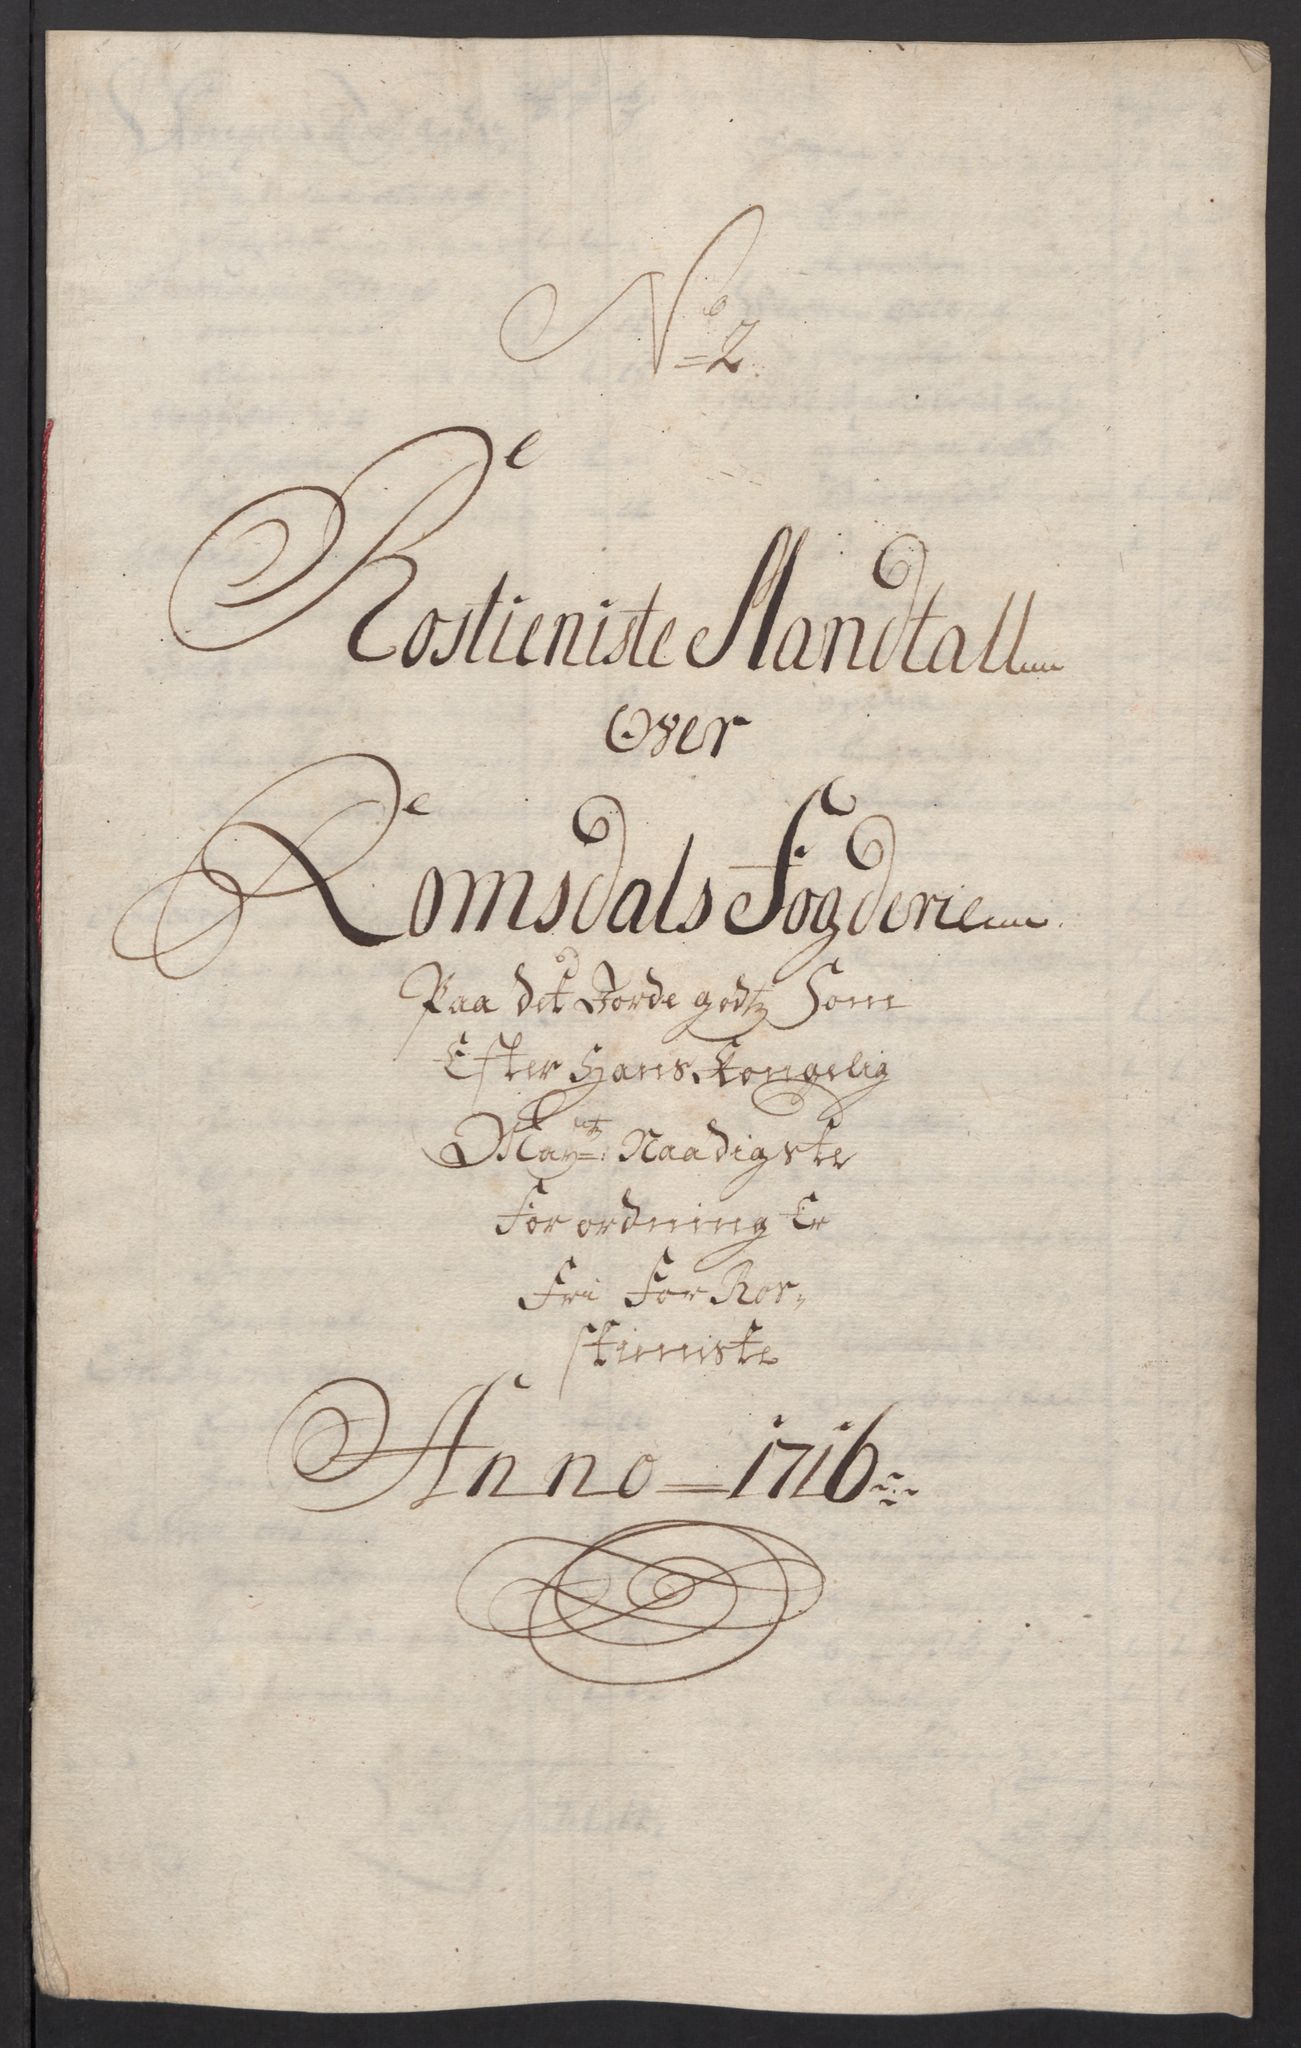 No 2
Rostieniste Mandtall
Over
Romsdals Fogderie
Paa det Jorde godtz Som
Efter Hans Kongelig
Mayts: Naadigste
Forordning Er
Fri For Ros,
tieniste
Anno 1716